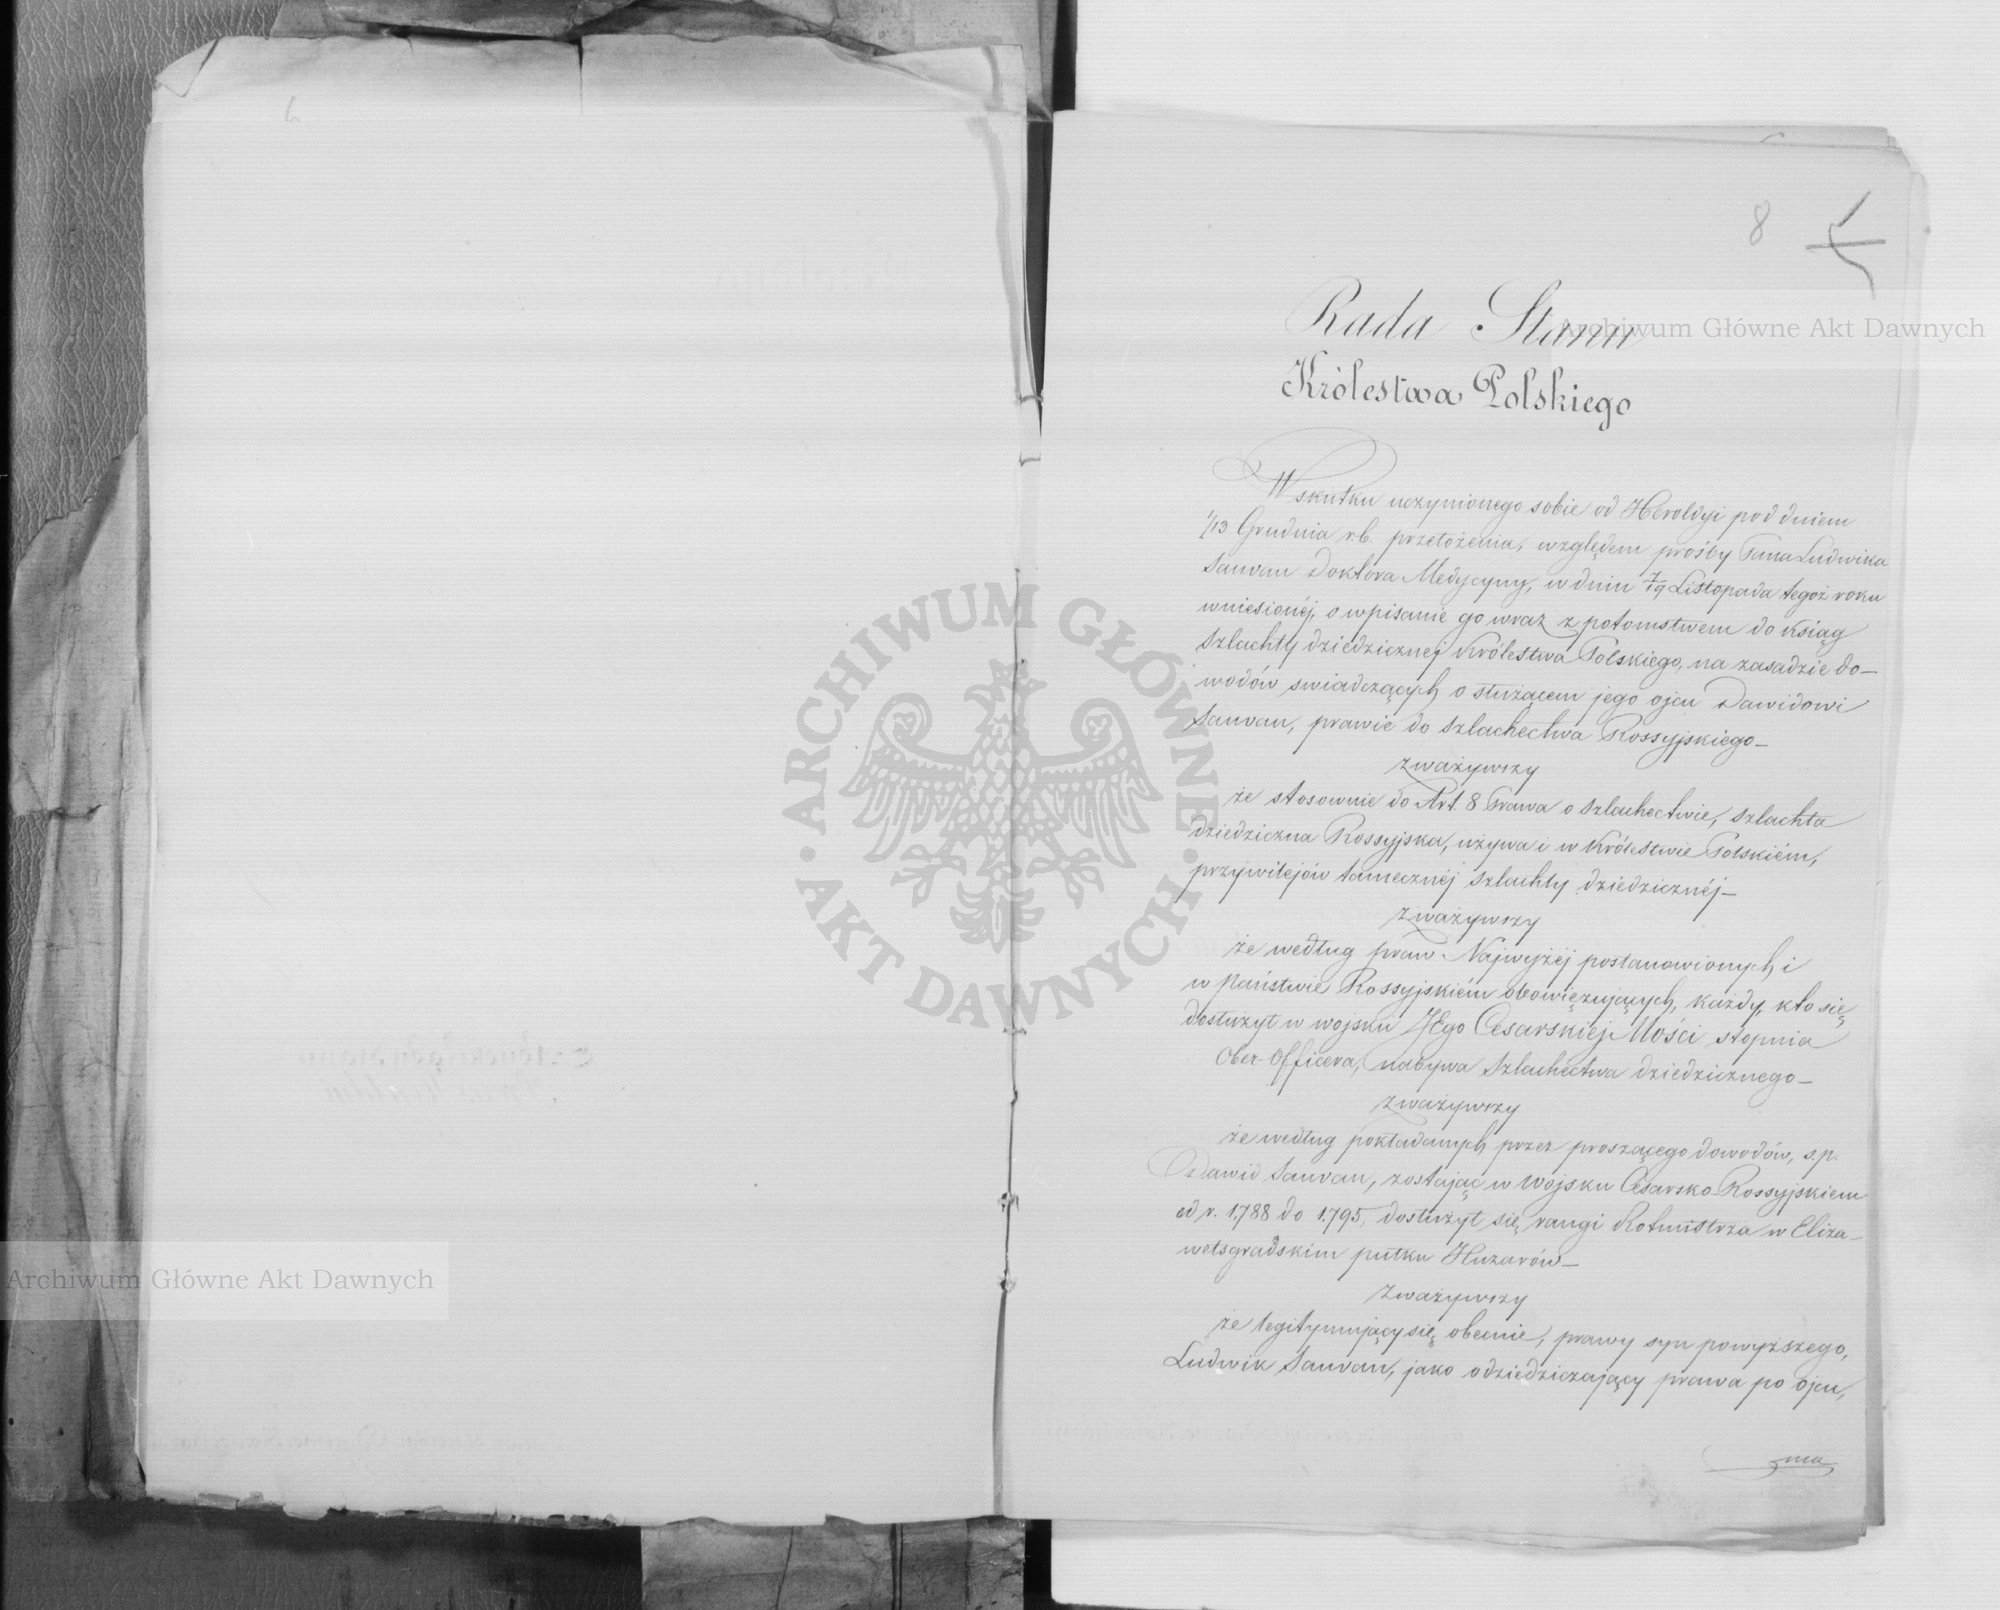 8
Rada Stanu
Królestwa Polskiego
W skutku uczynionego sobie od Heroldyi pod dniem
1/13 Grudnia r.b. przełożenia, względem prośby Pana Ludwika
Sauvan Doktora Medycyny, w dniu 7/19 Listopada tegoż roku
wniesionéj, o wpisanie go wraz z potomstwem do Ksiąg
Szlachty dziedzicznej Królestwa Polskiego, na zasadzie do-
wodów swiadczących o służącem jego ojcu Dawidowi
Sauvan, prawie do Szlachectwa Rossyjskiego-
zważywszy
że stosownie do Art. 8 Prawa o Szlachectwie, szlachta
dziedziczna Rossyjska, używa i w Królestwie Polskiém,
przywilejów tamecznéj Szlachty dziedzicznéj-
zważywszy
że według praw Najwyżéj postanowionych i
w Państwie Rossyjskiém obowięzujących, każdy, kto się
dosłużył w wojsku JEgo Cesarskiej Mości stopnia
Ober-Officera, nabywa Szlachectwa dziedzicznego-
zważywszy
że według pokładanych przez proszącego dowodów, s.p.
Dawid Sauvan, zostając w Wojsku Cesarsko Rossyjskiem
od r. 1788 do 1795, dosłużył się rangi Rotmistrza w Eliza-
wetsgradskim pułku Huzarów-
zważywszy
że legitymujący się obecnie, prawy syn powyższego,
Ludwik Sauvan, jako odziedziczający prawa po ojcu,
ma
Archiwum Główne Akt Dawnych
ARCHIWUM GŁÓWNE
AKT DAWNYCH
Archiwum Główne Akt Dawnych